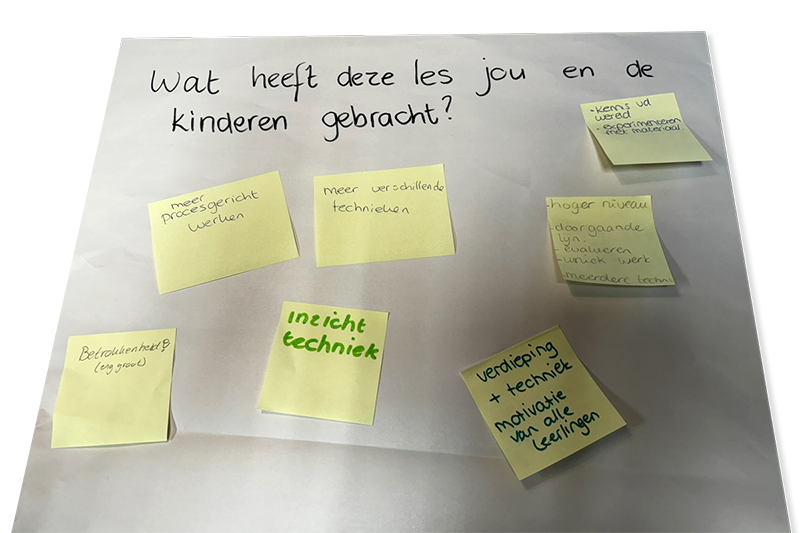 Wat heeft deze les jou en de
kinderen gebracht?
- Kennis vd
wereld
- experimenteren
met materiaal
meer
procesgericht
werken
meer verschillende
technieken
- hoger niveau
- doorgaande
lijn.
- evalueren
- uniek werk
- meerdere techni
Betrokkenheid!
(erg groot)
inzicht
techniek
verdieping
+ techniek
motivatie
van alle
leerlingen